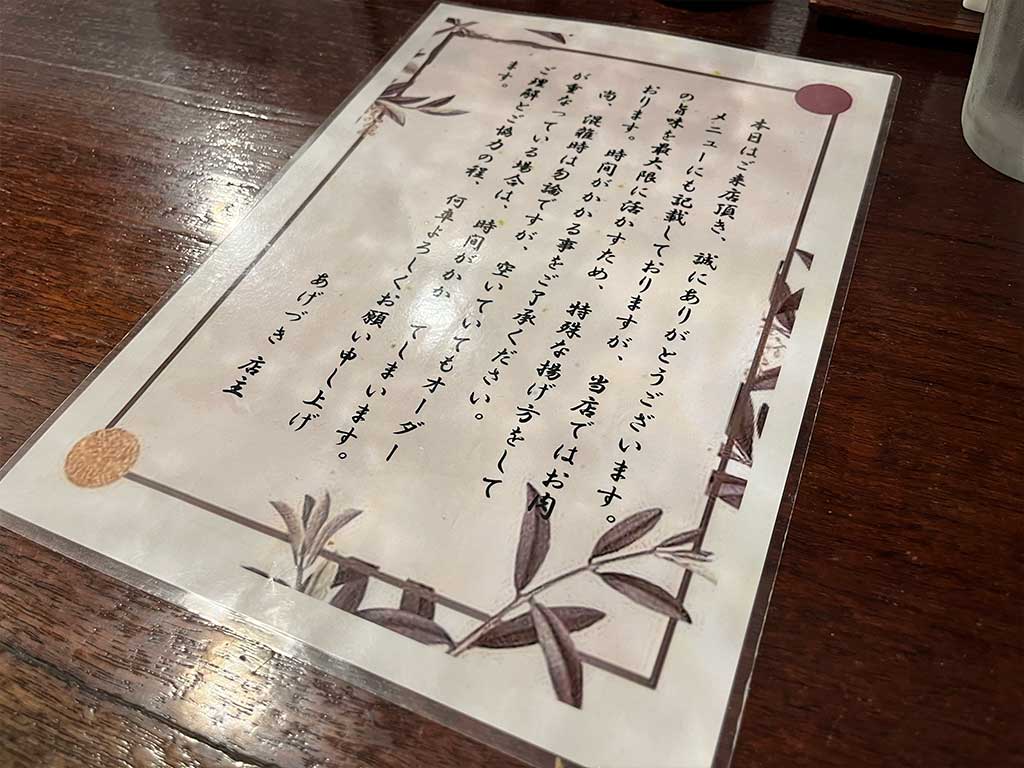 本日はご来店頂き、誠にありがとうございます。
メニューにも記載しておりますが、当店ではお肉
の旨味を最大限に活かすため、特殊な揚げ方をして
おります。時間がかかる事をご了承ください。
尚、混雑時は勿論ですが、空いていてもオーダー
が重なっている場合は、時間がかかってしまいます。
ご理解とご協力の程、何卒よろしくお願い申し上げ
ます。
あげづき 店主